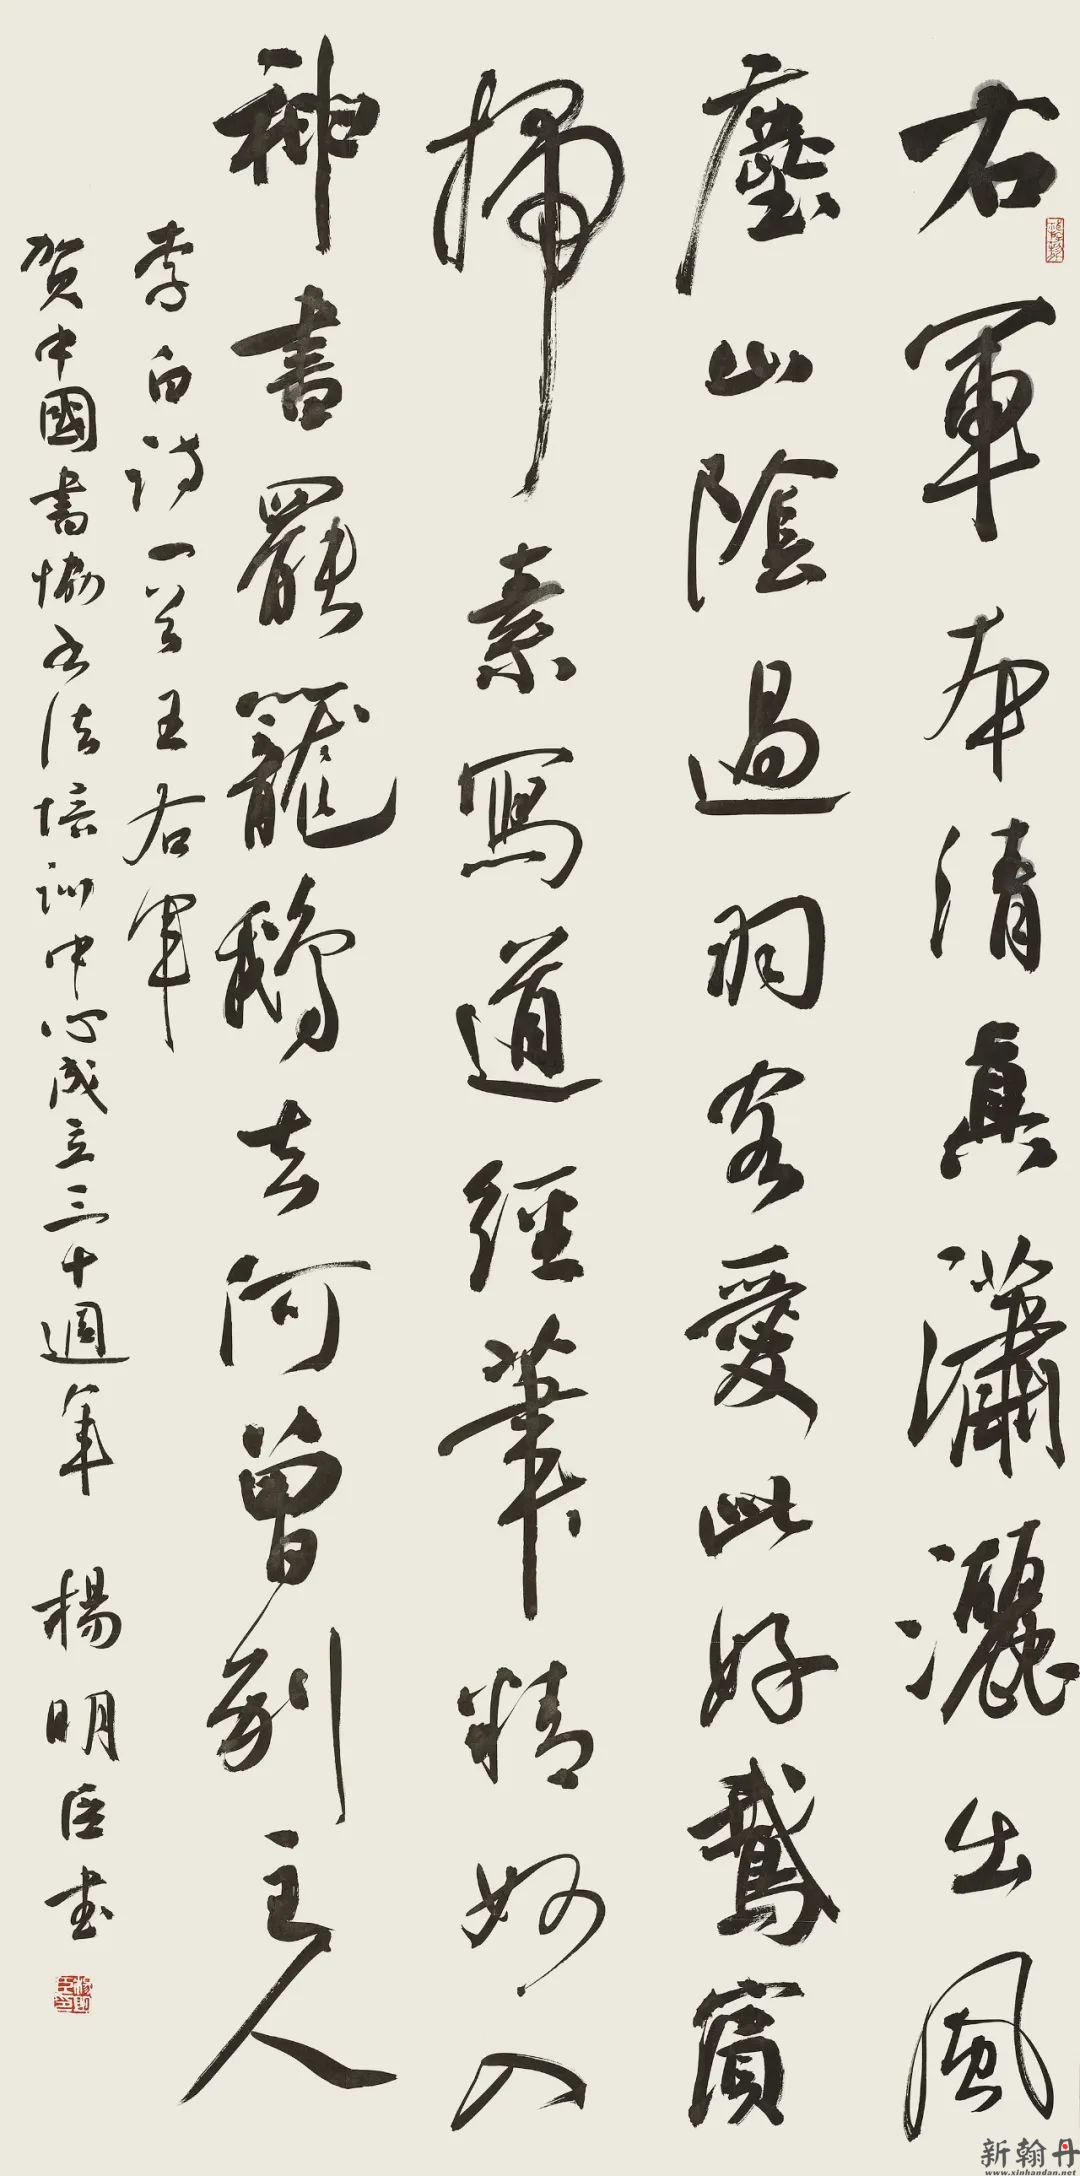 右軍本清真瀟灑出風
塵山陰過羽客愛此好鵞賓
掃素寫道經筆精妙入
神書罷籠鵝去何曾別主人
李白詩一首王右軍
賀中國書協书法培训中心成立三十週年 楊明臣书
新翰丹
www.xinhandan.net